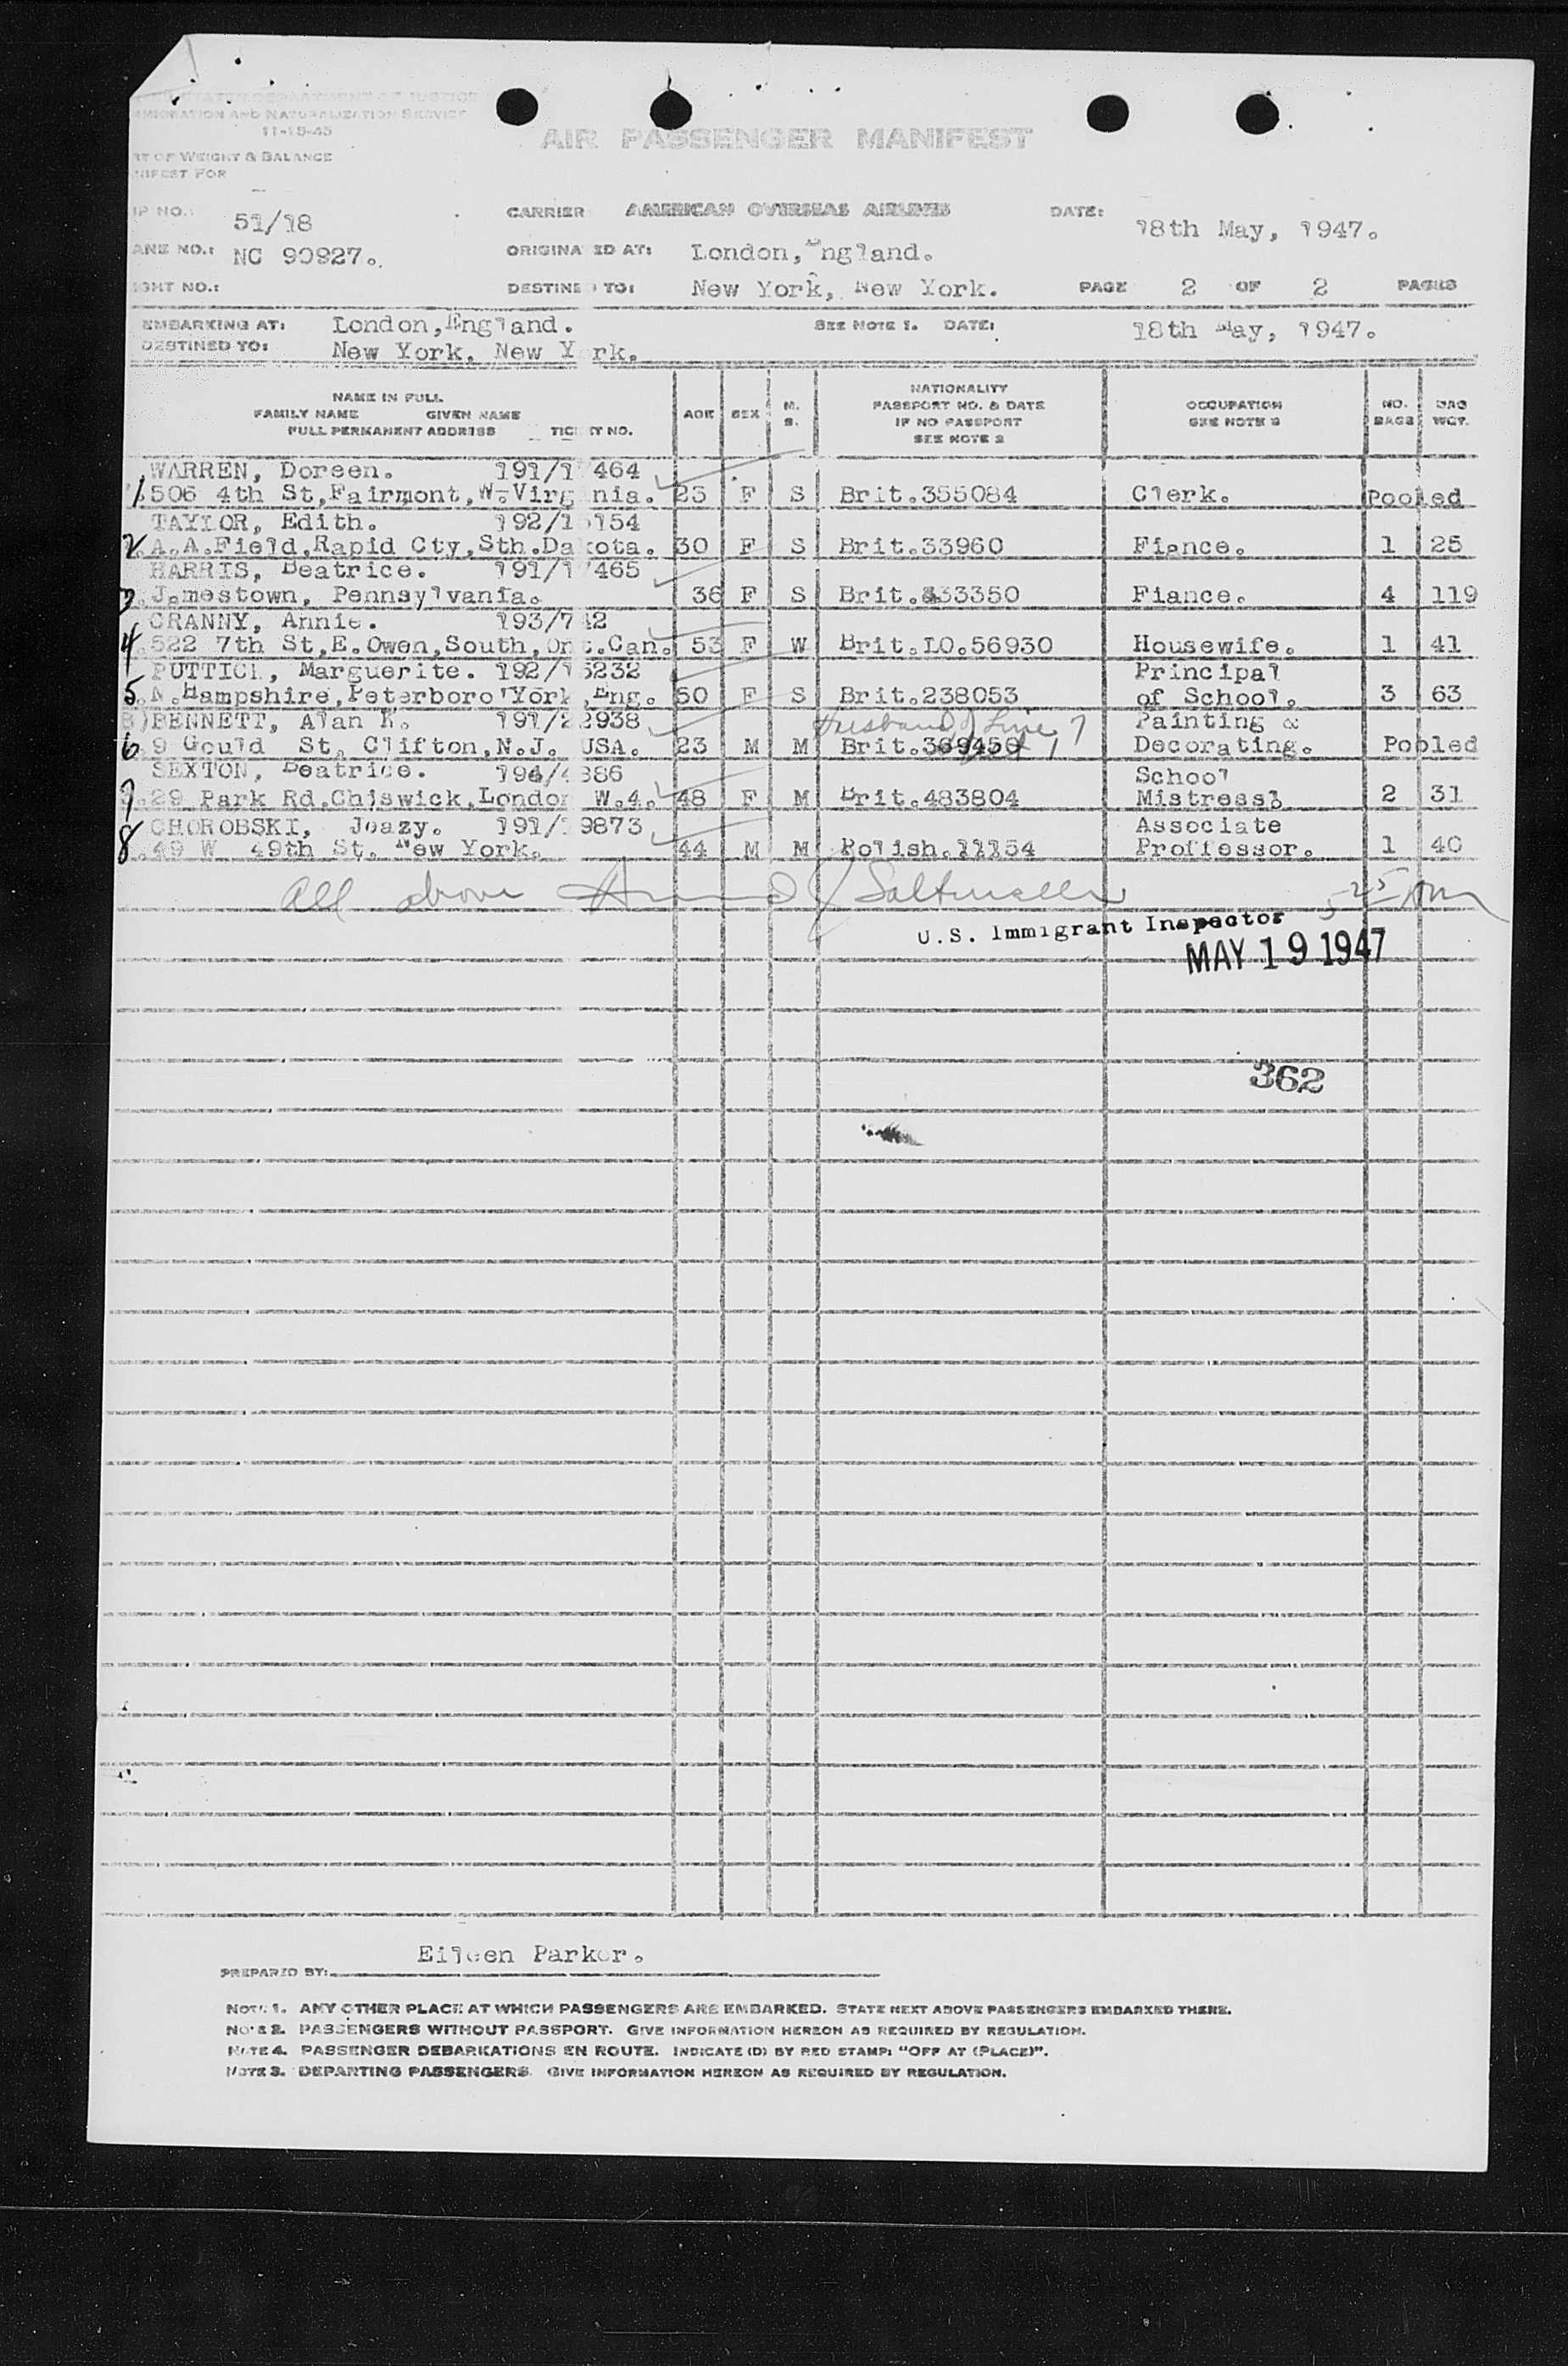 UNITED STATES DEPARTMENT OF JUSTICE
IMMIGRATION AND NATURALIZATION SERVICE
11-15-45
AIR PASSENGER MANIFEST
RT OF WEIGHT & BALANCE
NIFEST FOR
IP NO.: 51/18 CARRIER AMERICAN OVERSEAS AIRLINES DATE: 18th May, 1947.
ANE NO.: NC 90927. ORIGINA ED AT: London, England.
IGHT NO.: DESTINE TO: New York, New York. PAGE 2 OF 2 PAGES
EMBARKING AT: London, England. SEE NOTE 1. DATE: 18th May, 1947.
DESTINED TO: New York, New Y rk.
NAME IN FULL
FAMILY NAME GIVEN NAME
FULL PERMANENT ADDRESS TICK T NO.
AGE SEX M. S.
NATIONALITY
PASSPORT NO. & DATE
IF NO PASSPORT
SEE NOTE 2
OCCUPATION
SEE NOTE 3
NO. BAGS BAG WGT.
WARREN, Doreen. 191/1 464
1 506 4th St,Fairmont,W.Virg nia. 23 F S Brit.355084 Clerk. Pooled
TAYLOR, Edith. 192/1 154
2 A.A.Field,Rapid Cty,Sth.Da kota. 30 F S Brit.33960 Fiance. 1 25
HARRIS, Beatrice. 191/1 465
3 Jamestown, Pennsylvania. 36 F S Brit.833350 Fiance. 4 119
CRANNY, Annie. 193/7 2
4 522 7th St,E.Owen,South,Ont.Can. 53 F W Brit.LO.56930 Housewife. 1 41
PUTTICK, Marguerite. 192/1 5232 Principal
5 N.Hampshire,Peterboro'York,Eng. 50 F S Brit.238053 of School. 3 63
BENNETT, Alan K. 191/2 2938 Husband of Line 7 Painting &
6 9 Gould St, Clifton,N.J. USA. 23 M M Brit.369459 Decorating. Pooled
SEXTON, Beatrice. 194/4 886 School
7 29 Park Rd,Chiswick,London W.4. 48 F M Brit.483804 Mistress. 2 31
CHOROBSKI, Jeazy. 191/1 9873 Associate
8 49 W 49th St. New York. 44 M M Polish.11154 Proffessor. 1 40
All above
U.S. Immigrant Inspector
MAY 19 1947
362
Eileen Parker.
PREPARED BY:
NOTE 1. ANY OTHER PLACE AT WHICH PASSENGERS ARE EMBARKED. STATE NEXT ABOVE PASSENGERS EMBARKED THERE.
NOTE 2. PASSENGERS WITHOUT PASSPORT. GIVE INFORMATION HEREON AS REQUIRED BY REGULATION.
NOTE 4. PASSENGER DEBARKATIONS EN ROUTE. INDICATE (D) BY RED STAMP: "OFF AT (PLACE)".
NOTE 3. DEPARTING PASSENGERS. GIVE INFORMATION HEREON AS REQUIRED BY REGULATION.